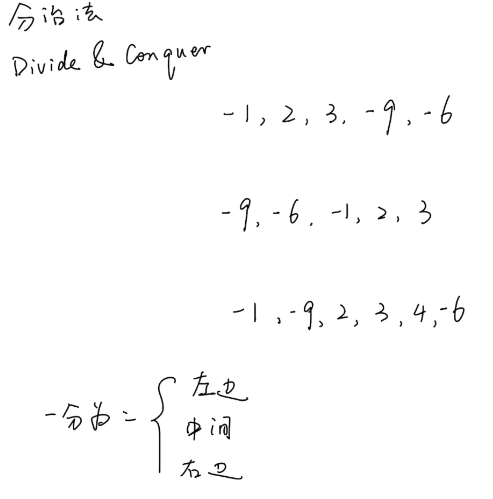 分治法
Divide & Conquer
-1, 2, 3, -9, -6
-9, -6, -1, 2, 3
-1, -9, 2, 3, 4, -6
一分为二
左边
中间
右边